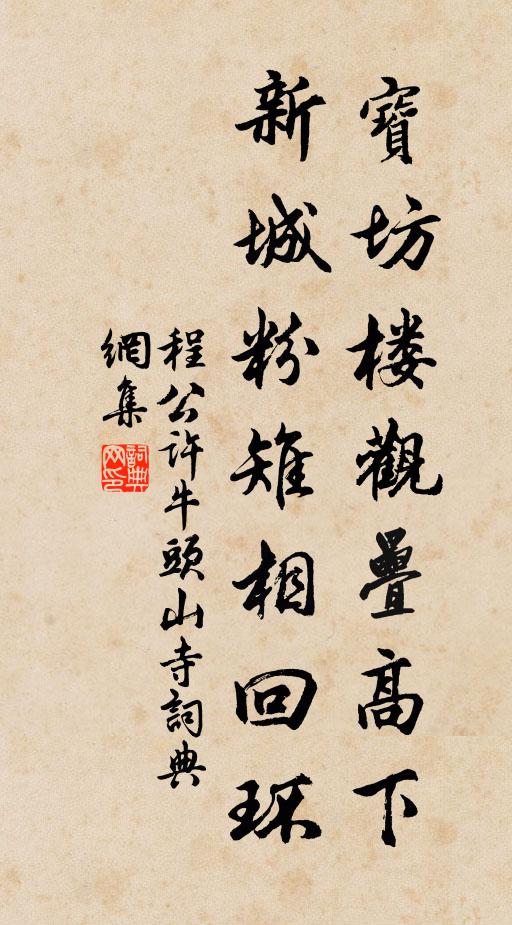 寶坊楼觀疊高下
新城粉雉相回环
程公許牛頭山寺詞典
網集
詞典网印